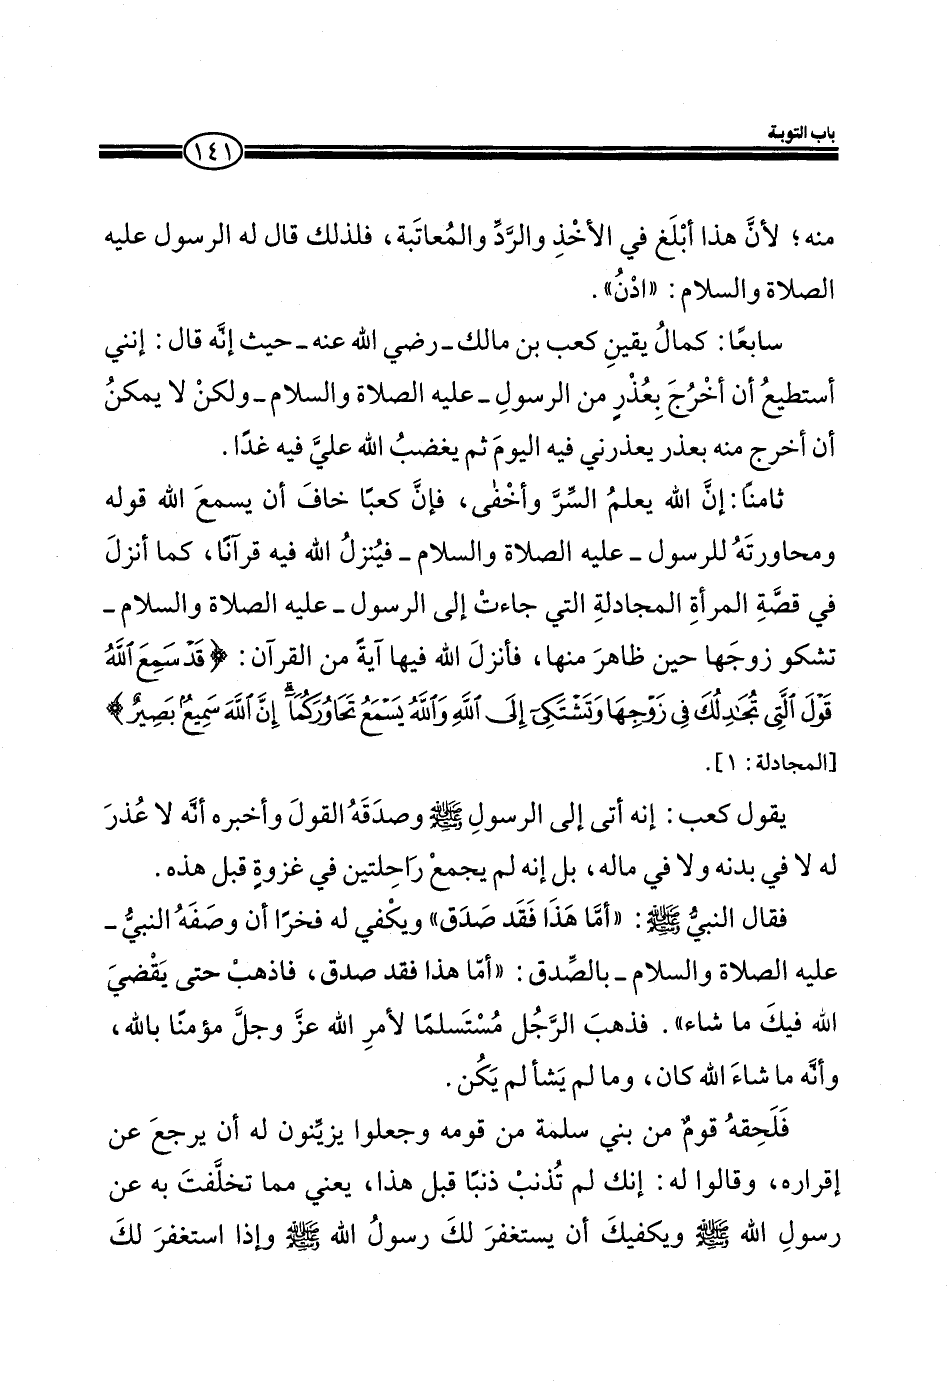 باب التوبة
١٤١
منه؛ لأنَّ هذا أبْلَغ في الأخْذِ والرَّدِّ والمُعاتَبة، فلذلك قال له الرسول عليه
الصلاة والسلام: «ادْنُ».
سابعًا: كمالُ يقينِ كعب بن مالك ـ رضي الله عنه ـ حيث إنَّه قال: إنني
أستطيعُ أن أخْرُجَ بِعُذْرٍ من الرسولِ ـ عليه الصلاة والسلام ـ ولكنْ لا يمكنُ
أن أخرج منه بعذر يعذرني فيه اليومَ ثم يغضبُ الله عليَّ فيه غدًا.
ثامنًا: إنَّ الله يعلمُ السِّرَّ وأخْفٰى، فإنَّ كعبًا خافَ أن يسمعَ الله قوله
ومحاورتَهُ للرسول ـ عليه الصلاة والسلام ـ فيُنزلُ الله فيه قرآنًا، كما أنزلَ
في قصَّةِ المرأةِ المجادلةِ التي جاءتْ إلى الرسول ـ عليه الصلاة والسلام ـ
تشكو زوجَها حين ظاهرَ منها، فأنزلَ الله فيها آيةً من القرآن: ﴿قَدْ سَمِعَ ٱللَّهُ
قَوْلَ ٱلَّتِي تُجَٰدِلُكَ فِي زَوْجِهَا وَتَشْتَكِيٓ إِلَى ٱللَّهِ وَٱللَّهُ يَسْمَعُ تَحَاوُرَكُمَآۚ إِنَّ ٱللَّهَ سَمِيعُۢ بَصِيرٌ﴾
[المجادلة: ١].
يقول كعب: إنه أتى إلى الرسولِ ﷺ وصدَقَهُ القولَ وأخبره أنَّه لا عُذرَ
له لا في بدنه ولا في ماله، بل إنه لم يجمعْ رَاحِلتين في غزوةٍ قبل هذه.
فقال النبيُّ ﷺ: «أمَّا هَذَا فَقَد صَدَق» ويكْفي له فخرًا أن وصَفَهُ النبيُّ ـ
عليه الصلاة والسلام ـ بالصِّدق: «أمّا هذا فقد صدق، فاذهبْ حتى يَقْضيَ
الله فيكَ ما شاء». فذهبَ الرَّجُل مُسْتَسلمًا لأمرِ الله عزَّ وجلَّ مؤمنًا بالله،
وأنَّه ما شاءَ الله كان، وما لم يَشأ لم يَكُن.
فَلَحِقهُ قومٌ من بني سلمة من قومه وجعلوا يزيِّنون له أن يرجعَ عن
إقراره، وقالوا له: إنك لم تُذنبْ ذنبًا قبل هذا، يعني مما تخلَّفتَ به عن
رسولِ الله ﷺ ويكفيكَ أن يستغفرَ لكَ رسولُ الله ﷺ وإذا استغفرَ لكَ